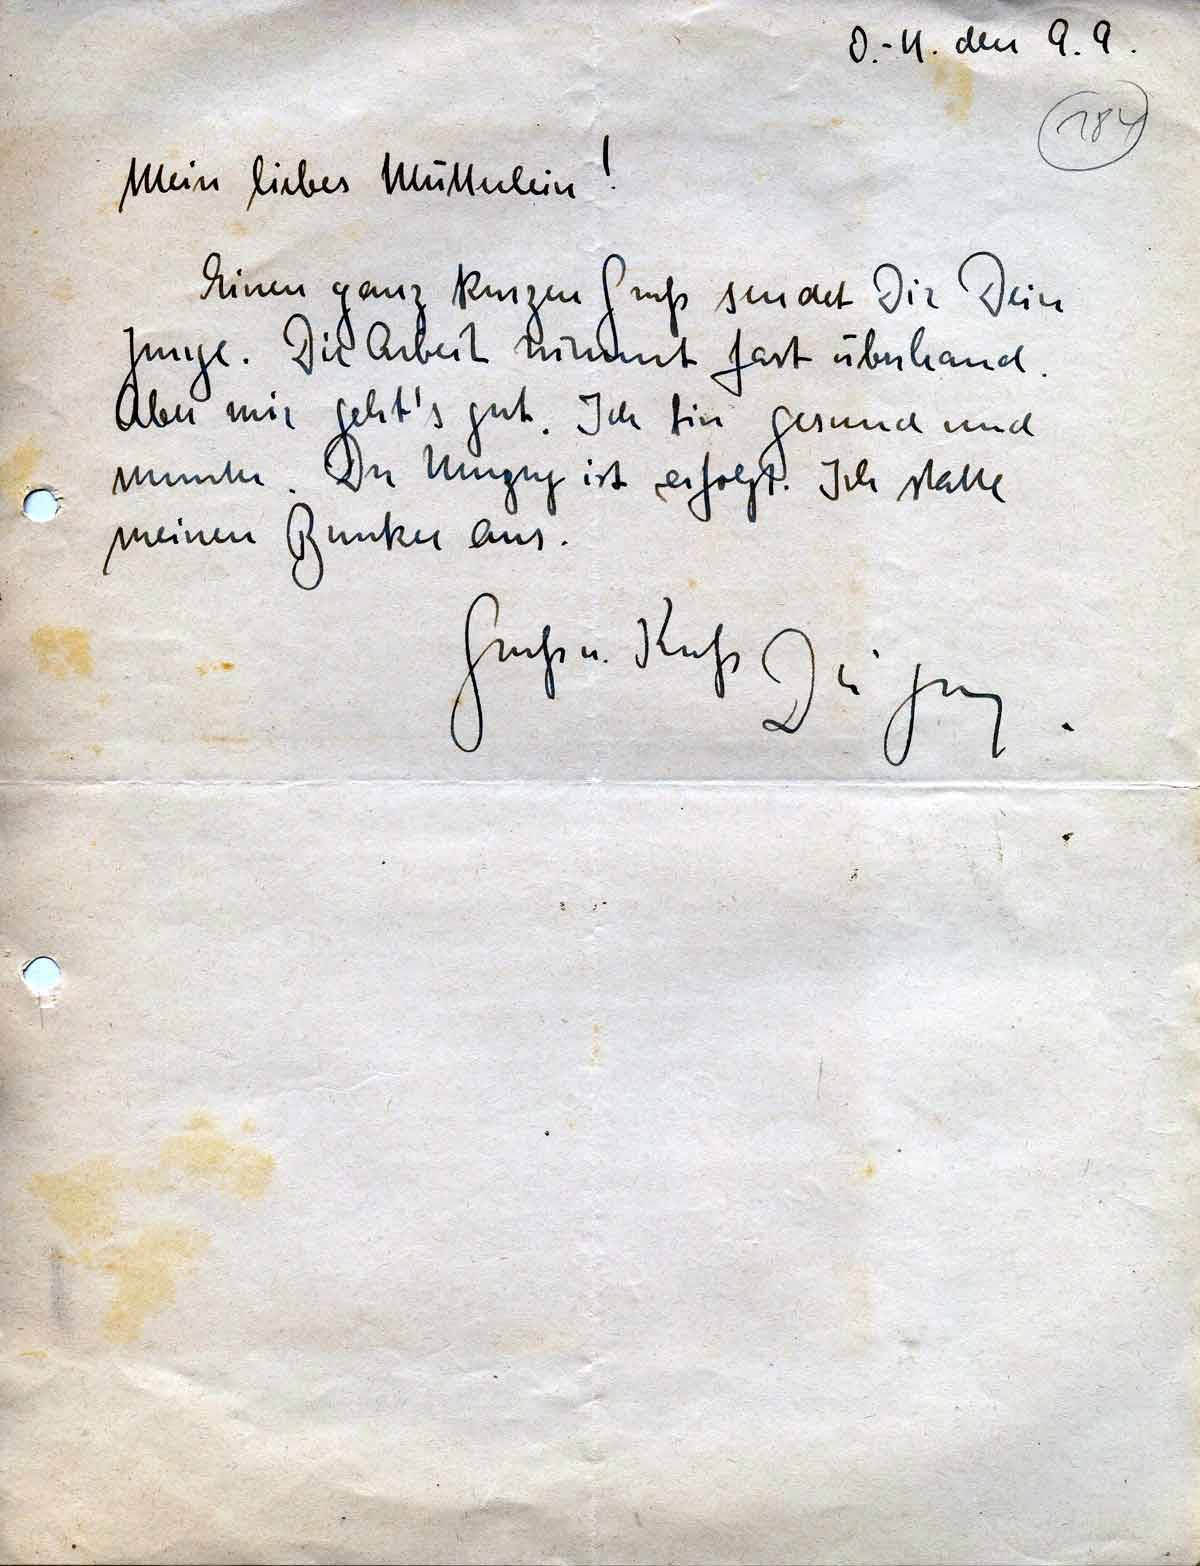 O.-U. den 9.9.
184
Mein liebes Mütterlein!
Einen ganz kurzen Gruß sendet Dir Dein
Junge. Die Arbeit nimmt fast überhand.
Aber mir geht's gut. Ich bin gesund und
munter. Der Umzug ist erfolgt. Ich statte
meinen Bunker aus.
Gruß u. Kuß Dei Jung.